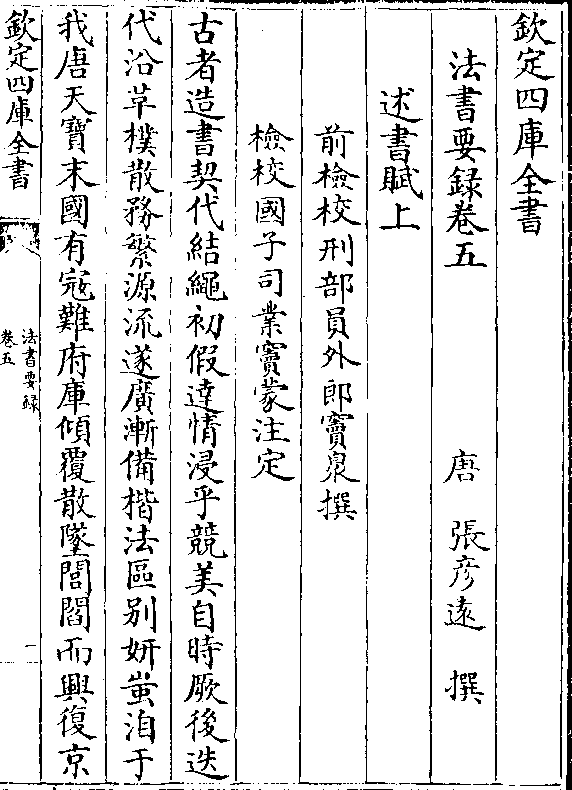 欽定四庫全書
法書要録卷五
唐 張彦遠 撰
述書賦上
前檢校刑部員外郎竇臮撰
檢校國子司業竇蒙注定
古者造書契代結繩初假達情浸乎競美自時厥後迭
代沿革樸散務繁源流遂廣漸備楷法區别妍蚩洎于
我唐天寶末國有寇難府庫傾覆散墜閭閻而興復京
欽定四庫全書
法書要録
卷五
一